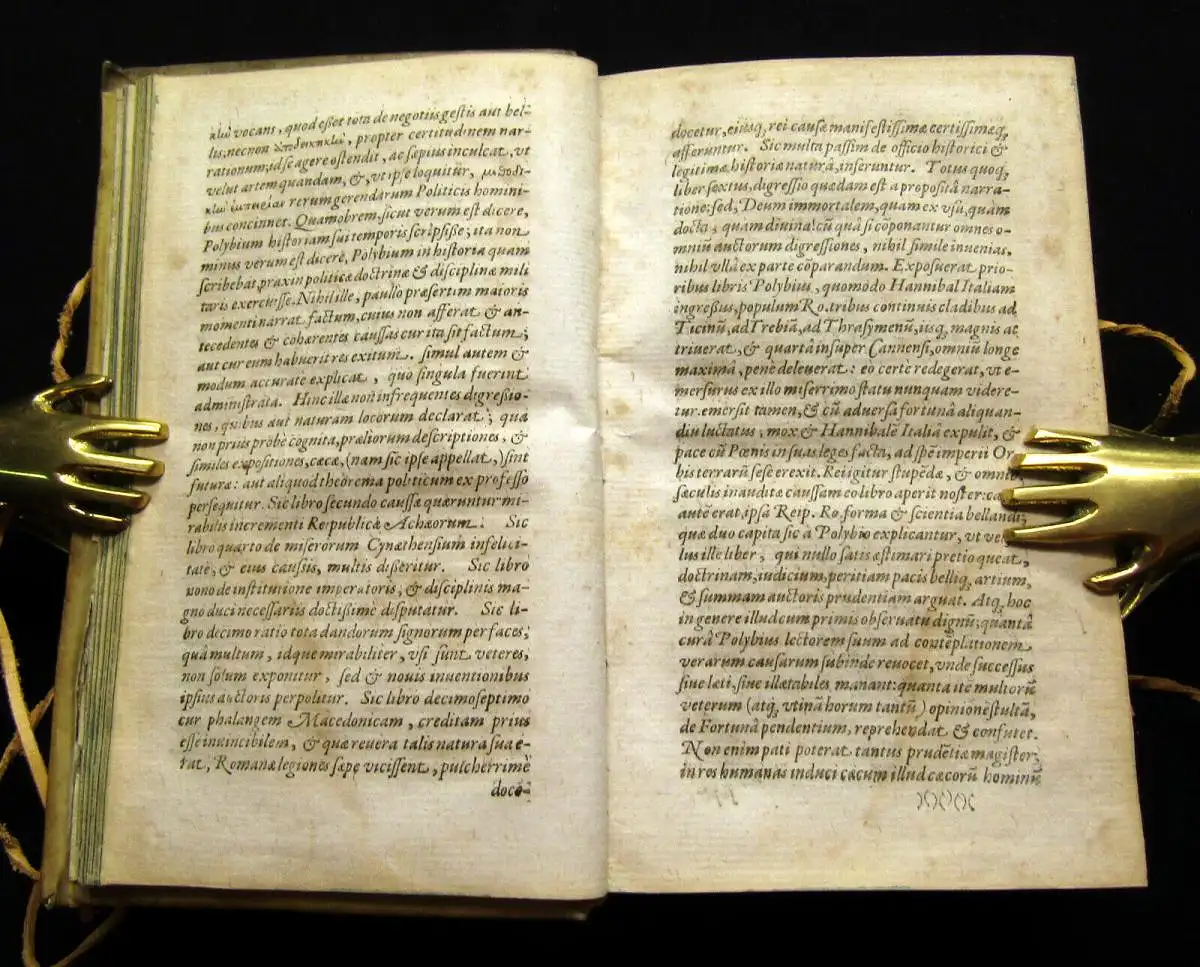 κλιὼ vocans, quod eßet tota de negotiis gestis aut bel-
lis: necnon ἀποδεικτικλιὼ, propter certitudinem nar-
rationum, id se agere ostendit, ac sæpius inculcat, vt
velut artem quandam, &, vt ipse loquitur, μεθοδι-
κλιὼ ἐμπειρίαν rerum gerendarum Politicis homini-
bus concinnet. Quamobrem, sicut verum est dicere,
Polybium historiam sui temporis scripsisse; ita non
minus verum est dicere, Polybium in historia quam
scribebat, praxin politicæ doctrinæ & disciplinæ mili
taris exercuisse. Nihil ille, paullo præsertim maioris
momenti narrat factum, cuius non afferat & an-
tecedentes & cohærentes caussas cur ita sit factum;
aut cur eum habuerit res exitum. simul autem &
modum accurate explicat, quo singula fuerint
administrata. Hinc illæ non infrequentes digressio-
nes, quibus aut naturam locorum declarat; quâ
non prius probè cognita, præliorum descriptiones, &
similes expositiones, cæcæ, (nam sic ipse appellat,) sint
futuræ: aut aliquod theorema politicum ex professo
persequitur. Sic libro secundo caussæ quæruntur mi-
rabilis incrementi Reipublicæ Achæorum. Sic
libro quarto de miserorum Cynæthensium infelici-
tate, & eius caussis, multis disseritur. Sic libro
nono de institutione imperatoris, & disciplinis ma-
gno duci necessariis doctißimè disputatur. Sic li-
bro decimo ratio tota dandorum signorum per faces;
quâ multum, idque mirabiliter, vsi sunt veteres,
non solum exponitur, sed & nouis inuentionibus
ipsius auctoris perpolitur. Sic libro decimoseptimo
cur phalangem Macedonicam, creditam prius
esse inuincibilem, & quæ reuera talis natura sua e-
rat, Romanæ legiones sæpe vicissent, pulcherrimè
doce-
docetur, eiusq; rei causæ manifestissimæ certissimæq;
afferuntur. Sic multa passim de officio historici &
legitimæ historiæ naturâ, inseruntur. Totus quoq;
liber sextus, digressio quædam est a proposita narra-
tione: sed, Deum immortalem, quam ex vsu, quàm
docta; quam diuina: cū quâ si cōponantur omnes o-
mniū auctorum digressiones, nihil simile inuenias,
nihil vllâ ex parte cōparandum. Exposuerat prio-
ribus libris Polybius, quomodo Hannibal Italiam
ingreßus, populum Ro. tribus continuis cladibus ad
Ticinū, ad Trebiā, ad Thrasymenū, usq; magnis at
triuerat, & quartâ insuper Cannensi, omniū longe
maximâ, penè deleuerat: eo certè redegerat, vt e-
mersurus ex illo miserrimo statu nunquam videre-
tur. emersit tamen, & cū aduersâ fortunâ aliquan-
diu luctatus, mox & Hannibalē Italiâ expulit, &
pace cū Pœnis in suas leges factâ, ad spē imperii Or
bis terrarū sese erexit. Rei igitur stupēdæ, & omnib.
sæculis inauditæ caussam eo libro aperit noster:
autē erat, ipsa Reip. Ro. forma & scientia bellandi;
quæ duo capita sic à Polybio explicantur, vt vel
lus ille liber, qui nullo satis æstimari pretio queat,
doctrinam, iudicium, peritiam pacis belliq; artium,
& summam auctoris prudentiam arguat. Atq; hoc
in genere illud cum primis obseruatu dignū; quantâ
curâ Polybius lectorem suum ad contēplationem
verarum causarum subinde reuocet, vnde successus
siue læti, siue illætabiles manant: quanta itē multorū
veterum (atq; vtinā horum tantū) opinionē stultā,
de Fortunâ pendentium, reprehendat & confutet.
Non enim pati poterat tantus prudētiæ magister;
in res humanas induci cæcum illud cæcorū hominū